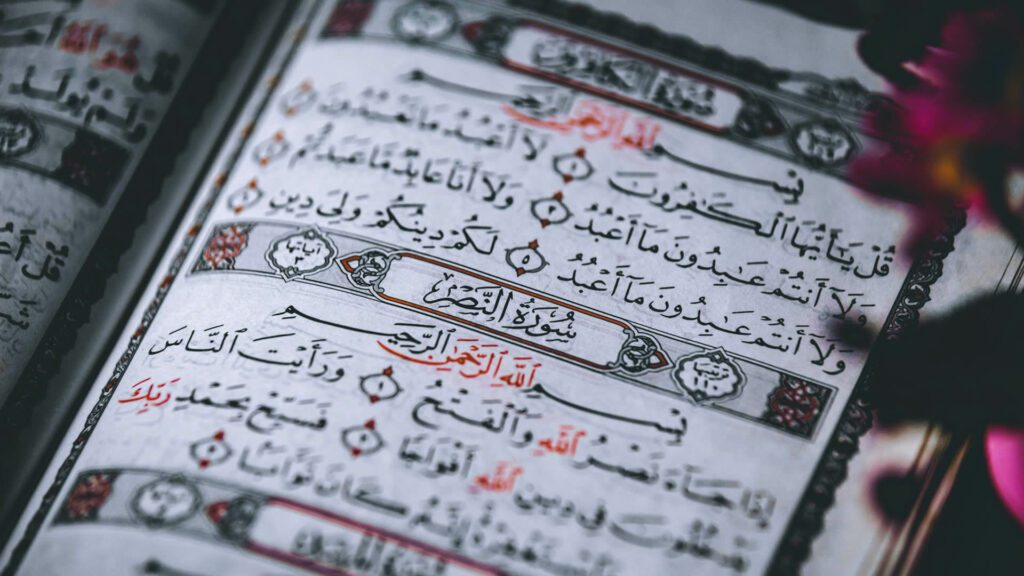 سُورَةُ الْكَافِرُونَ
بِسْمِ ٱللَّهِ ٱلرَّحْمَٰنِ ٱلرَّحِيمِ
قُلْ يَٰٓأَيُّهَا ٱلْكَٰفِرُونَ ١ لَآ أَعْبُدُ مَا تَعْبُدُونَ ٢
وَلَآ أَنتُمْ عَٰبِدُونَ مَآ أَعْبُدُ ٣ وَلَآ أَنَا۠ عَابِدٌ مَّا عَبَدتُّمْ ٤
وَلَآ أَنتُمْ عَٰبِدُونَ مَآ أَعْبُدُ ٥ لَكُمْ دِينُكُمْ وَلِىَ دِينِ ٦
سُورَةُ النَّصْرِ آياتها ٣
بِسْمِ ٱللَّهِ ٱلرَّحْمَٰنِ ٱلرَّحِيمِ
إِذَا جَآءَ نَصْرُ ٱللَّهِ وَٱلْفَتْحُ ١ وَرَأَيْتَ ٱلنَّاسَ
يَدْخُلُونَ فِى دِينِ ٱللَّهِ أَفْوَاجًا ٢ فَسَبِّحْ بِحَمْدِ رَبِّكَ
وَٱسْتَغْفِرْهُ إِنَّهُۥ كَانَ تَوَّابًۢا ٣
قُلْ هُوَ ٱللَّهُ